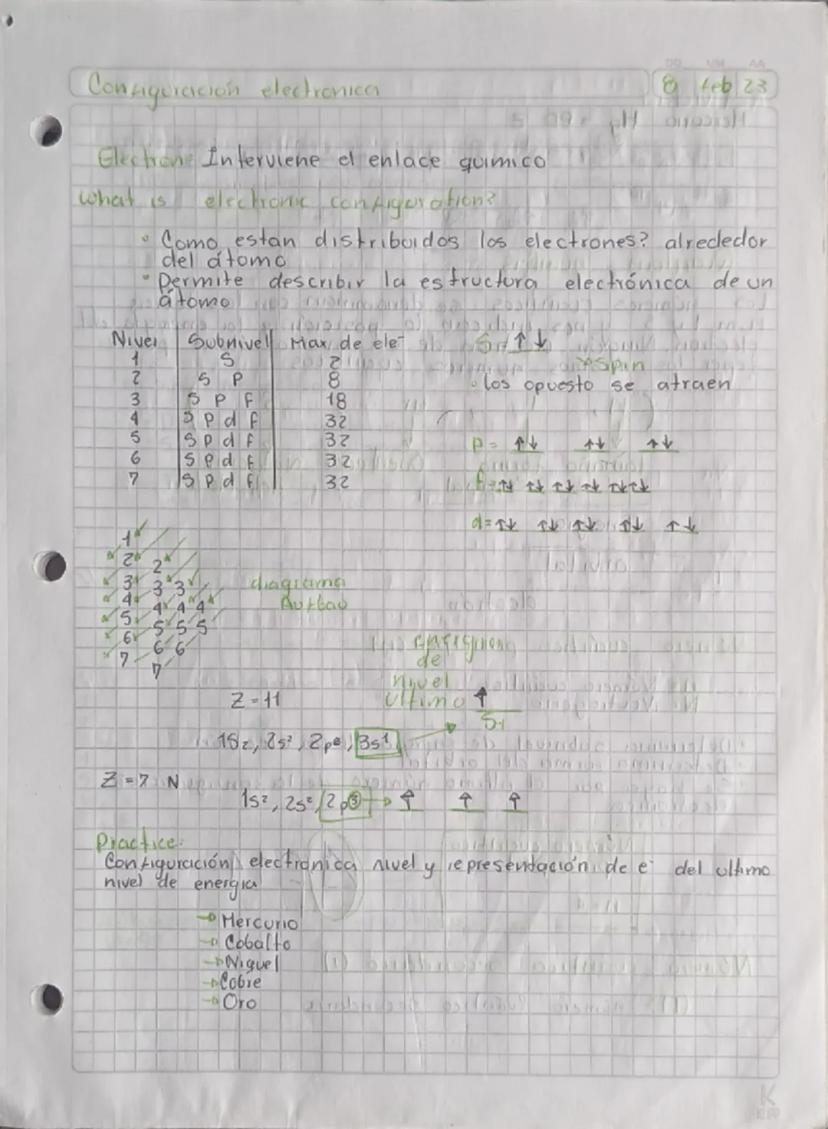 Configuración electronica
8 feb 23
Electrone Interviene el enlace quimico
What is electronic configuration?
• Como estan distribuidos los electrones? alrededor
del átomo
• Permite describir la estructura electrónica de un
átomo
Nivel Subnivel Max. de ele⁻
1 S 2
2 S P 8
3 S P F 18
4 S P d F 32
5 S P d F 32
6 S P d F 32
7 S P d F 32
S= ↑↓
spin
• los opuesto se atraen
P= ↑↓ ↑↓ ↑↓
f= ↑↓ ↑↓ ↑↓ ↑↓ ↑↓ ↑↓
d= ↑↓ ↑↓ ↑↓ ↑↓ ↑↓
1
2 2
3 3 3
4 4 4 4
5 5 5 5
6 6 6
7 7
diagrama
Aufbau
de
nivel
Ultimo ↑
S1
Z=11
1s2, 2s², 2p⁶, 3s¹
Z=7 N
1s², 2s², 2p③ → ↑ ↑ ↑
Practice:
Configuración electronica nivel y representación de e⁻ del ultimo
nivel de energia
→ Mercurio
→ Cobalto
→ Niquel
→ Cobre
→ Oro
K